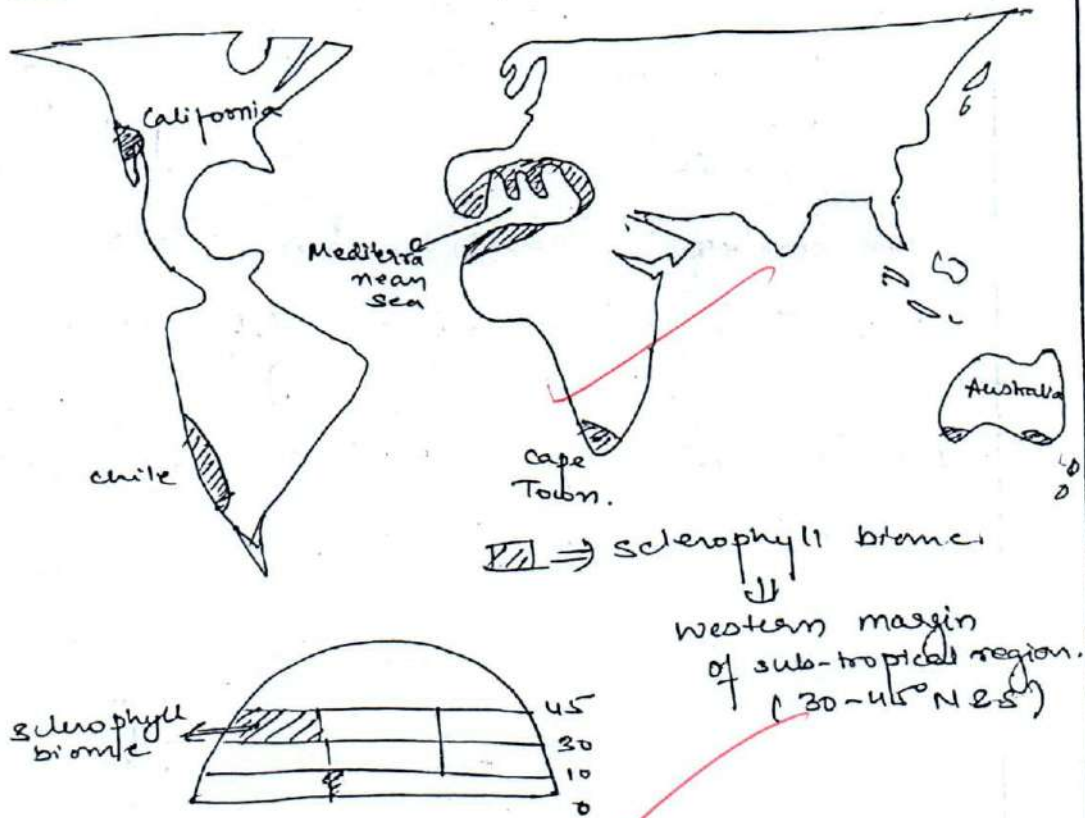 California
Mediterra
nean
sea
Australia
chile
Cape
Town.
⇒ sclerophyll biome.
⇓
western margin
of sub-tropical region.
(30-45° N & S)
sclerophyll
biome
45
30
10
0